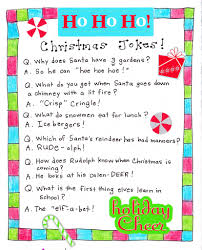 HO HO HO!
Christmas Jokes!
Q. Why does Santa have 3 gardens?
A. So he can "hoe hoe hoe!"
Q. What do you get when Santa goes down
a chimney with a lit fire?
A. "Crisp" Cringle!
Q. What do snowmen eat for lunch?
A. Ice bergers!
Q. Which of Santa's reindeer has bad manners?
A. RUDE-alph!
Q. How does Rudolph know when Christmas is
coming?
A. He looks at his calen-DEER!
Q. What is the first thing elves learn in
school?
A. The "elf-a-bet!
holiday
Cheer